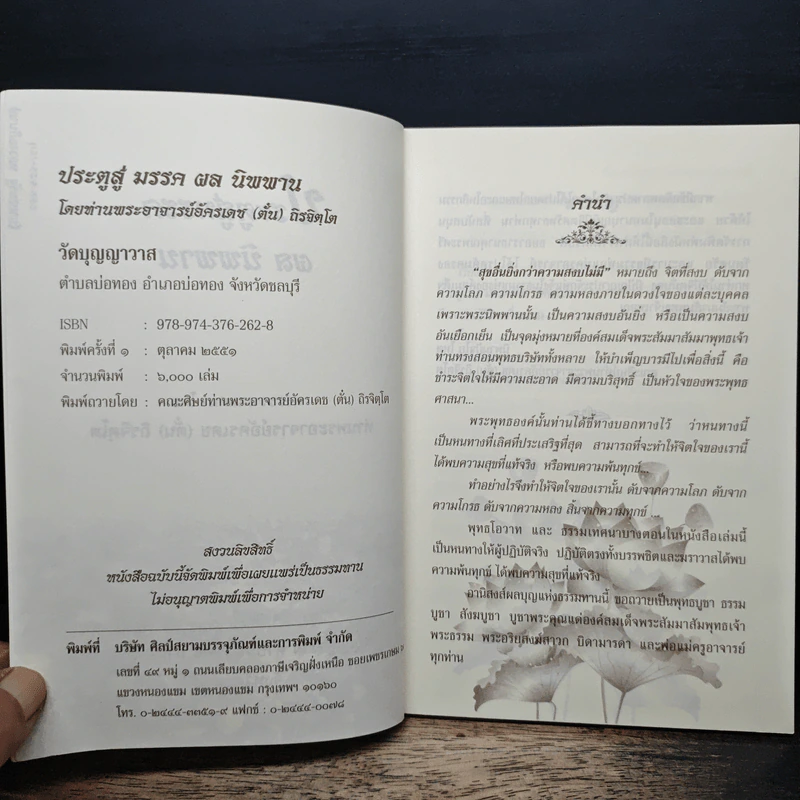 ประตูสู่ มรรค ผล นิพพาน
โดยท่านพระอาจารย์อัครเดช (ตั๋น) ถิรจิตฺโต
วัดบุญญาวาส
ตำบลบ่อทอง อำเภอบ่อทอง จังหวัดชลบุรี
ISBN : 978-974-376-262-8
พิมพ์ครั้งที่ ๑ : ตุลาคม ๒๕๕๑
จำนวนพิมพ์ : ๖,๐๐๐ เล่ม
พิมพ์ถวายโดย : คณะศิษย์ท่านพระอาจารย์อัครเดช (ตั๋น) ถิรจิตฺโต
สงวนลิขสิทธิ์
หนังสือฉบับนี้จัดพิมพ์เพื่อเผยแพร่เป็นธรรมทาน
ไม่อนุญาตพิมพ์เพื่อการจำหน่าย
พิมพ์ที่ บริษัท ศิลป์สยามบรรจุภัณฑ์และการพิมพ์ จำกัด
เลขที่ ๔๙ หมู่ ๑ ถนนเลียบคลองภาษีเจริญฝั่งเหนือ ซอยเพชรเกษม
แขวงหนองแขม เขตหนองแขม กรุงเทพฯ ๑๐๑๖๐
โทร. ๐-๒๔๔๔-๓๓๕๑-๙ แฟกซ์ : ๐-๒๔๔๔-๐๐๗๘
คำนำ
"สุขอื่นยิ่งกว่าความสงบไม่มี" หมายถึง จิตที่สงบ ดับจาก
ความโลภ ความโกรธ ความหลงภายในดวงใจของแต่ละบุคคล
เพราะพระนิพพานนั้น เป็นความสงบอันยิ่ง หรือเป็นความสงบ
อันเยือกเย็น เป็นจุดมุ่งหมายที่องค์สมเด็จพระสัมมาสัมพุทธเจ้า
ท่านทรงสอนพุทธบริษัททั้งหลาย ให้บำเพ็ญบารมีไปเพื่อสิ่งนี้ คือ
ชำระจิตใจให้มีความสะอาด มีความบริสุทธิ์ เป็นหัวใจของพระพุทธ
ศาสนา...
พระพุทธองค์นั้นท่านได้ชี้ทางบอกทางไว้ ว่าหนทางนี้
เป็นหนทางที่เลิศที่ประเสริฐที่สุด สามารถที่จะทำให้จิตใจของเรานี้
ได้พบความสุขที่แท้จริง หรือพบความพ้นทุกข์...
ทำอย่างไรจึงทำให้จิตใจของเรานั้น ดับจากความโลภ ดับจาก
ความโกรธ ดับจากความหลง สิ้นจากความทุกข์ ...
พุทธโอวาท และ ธรรมเทศนาบางตอนในหนังสือเล่มนี้
เป็นหนทางให้ผู้ปฏิบัติจริง ปฏิบัติตรงทั้งบรรพชิตและฆราวาสได้พบ
ความพ้นทุกข์ ได้พบความสุขที่แท้จริง
อานิสงส์ผลบุญแห่งธรรมทานนี้ ขอถวายเป็นพุทธบูชา ธรรม
บูชา สังฆบูชา บูชาพระคุณแด่องค์สมเด็จพระสัมมาสัมพุทธเจ้า
พระธรรม พระอริยสงฆ์สาวก บิดามารดา และพ่อแม่ครูอาจารย์
ทุกท่าน